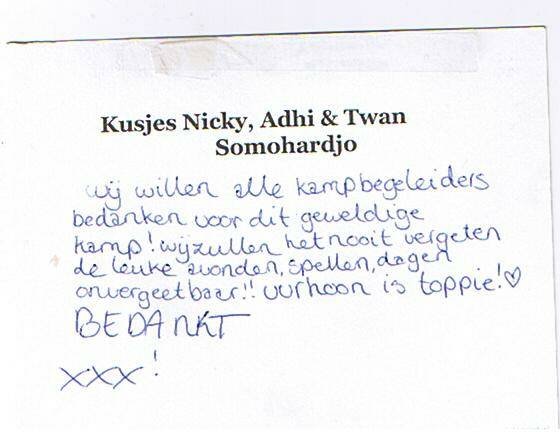 Kusjes Nicky, Adhi & Twan
Somohardjo
wij willen alle kampbegeleiders
bedanken voor dit geweldige
kamp! wij zullen het nooit vergeten
de leuke avonden, spellen, dagen
onvergeetbaar!! vurhoon is toppie!♡
BEDANKT
xxx!